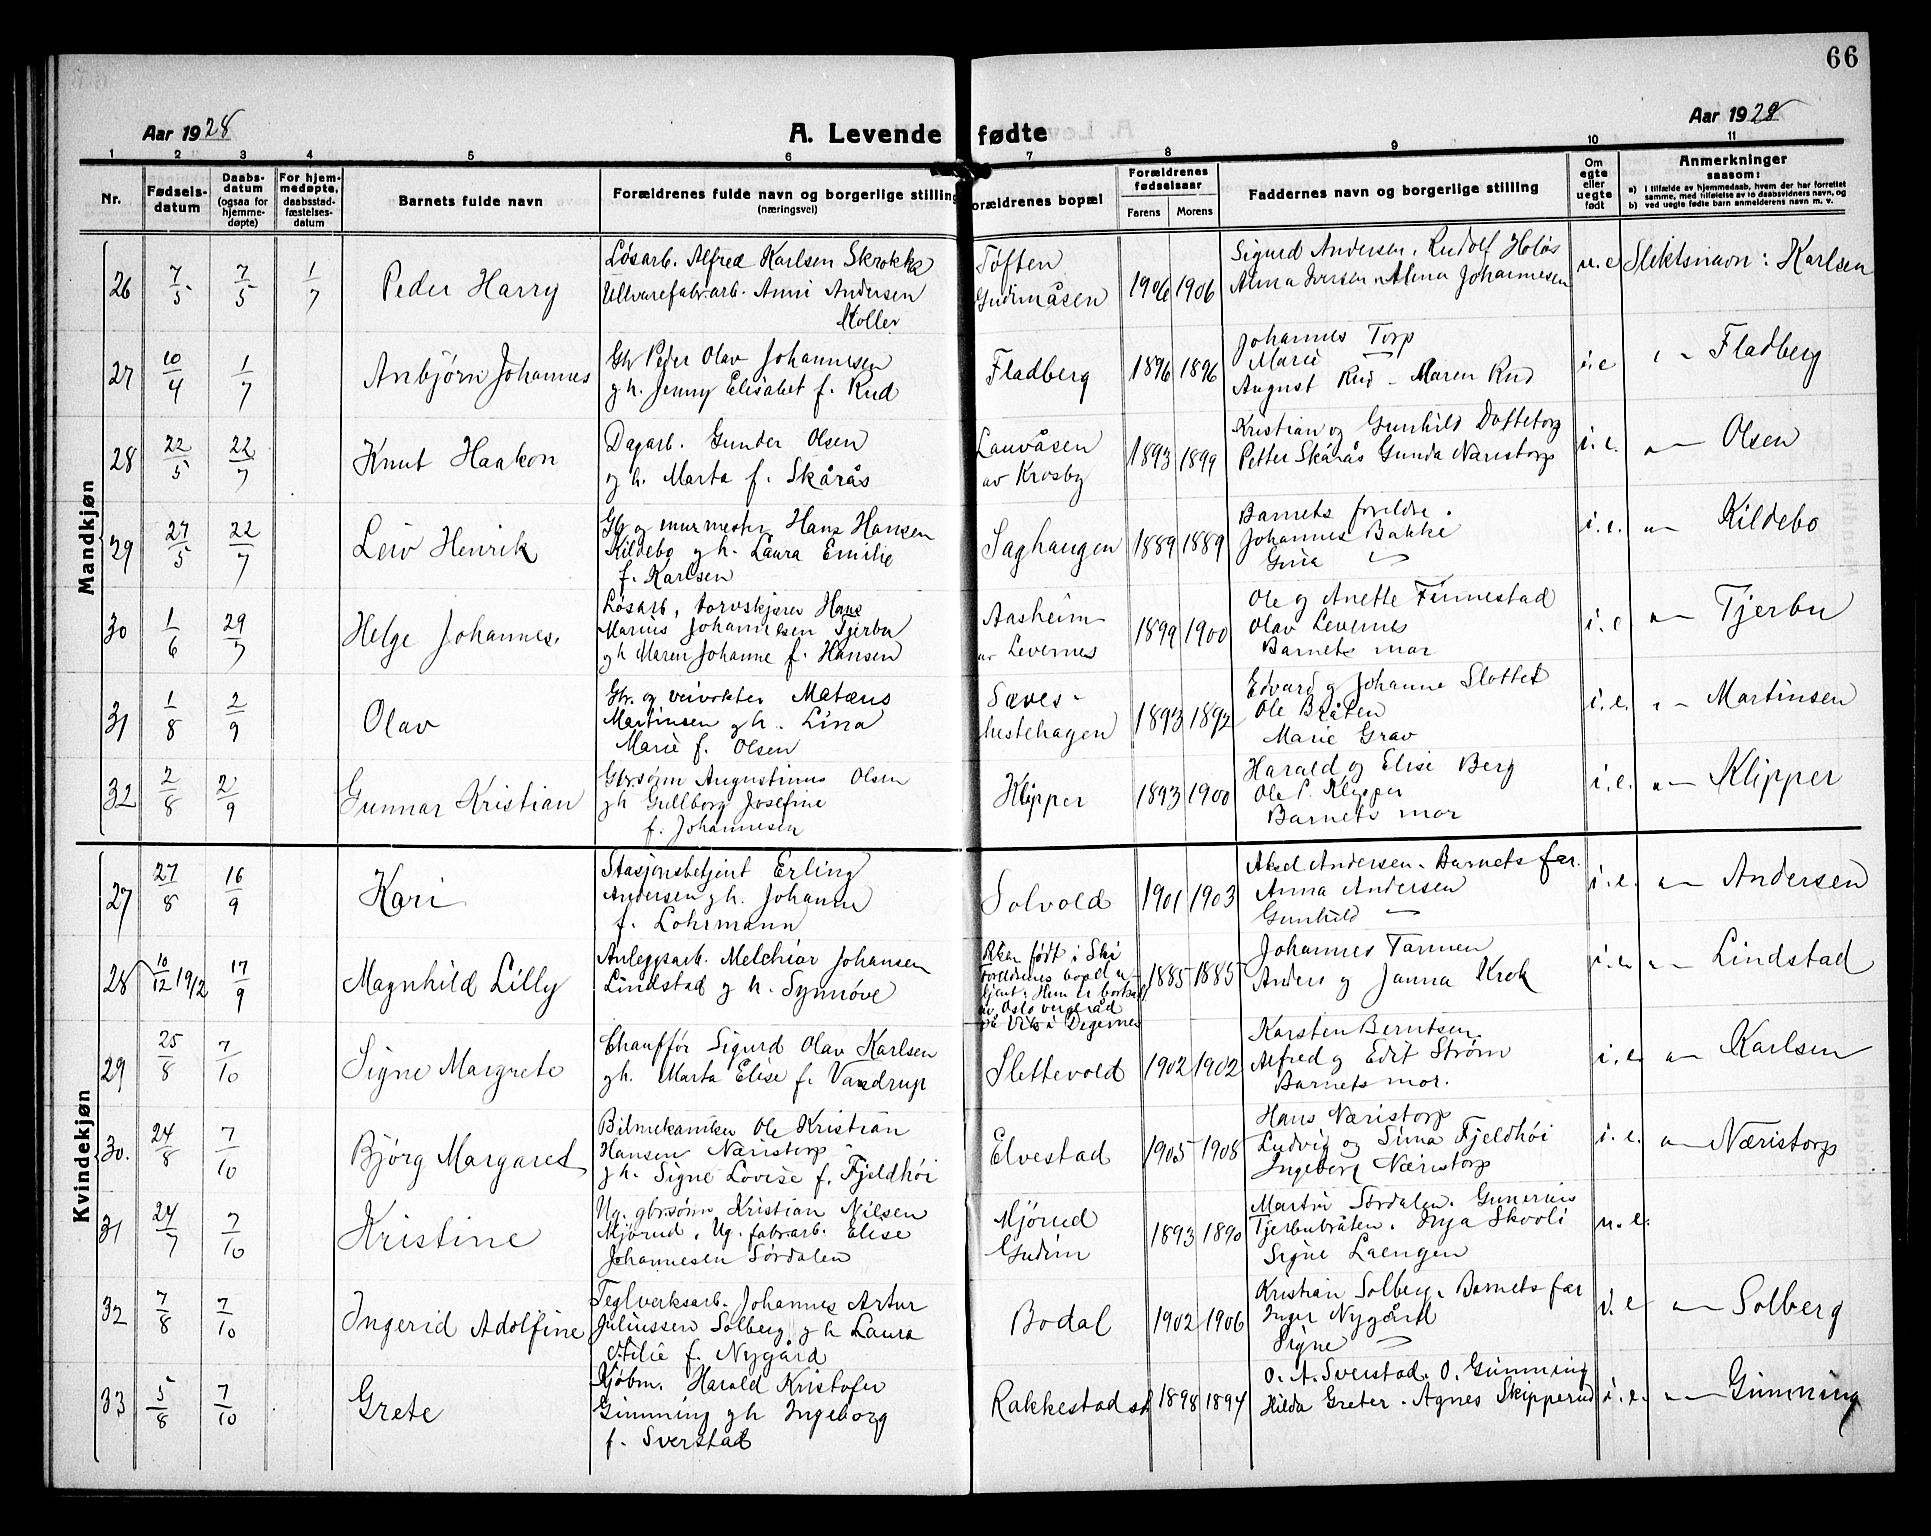 66
Aar 1928
A. Levende fødte
Aar 1928
1 2 3 4 5 6 7 8 9 10 11
Nr.
Fødsels-
datum
Daabs-
datum
(ogsaa for
hjemme-
døpte)
For hjem-
medøpte,
daabsstad-
fæstelses-
datum
Barnets fulde navn
Forældrenes fulde navn og borgerlige stilling
(næringsvei)
Forældrenes bopæl
Forældrenes
fødselsaar
Farens Morens
Faddernes navn og borgerlige stilling
Om
egte
eller
uegte
født
Anmerkninger
saasom:
a) I tilfælde av hjemmedaab, hvem der har forrettet
samme, med tilføielse av to daabsvidners navn, og
b) ved uegte fødte barn anmelderens navn m. v.
Mandkjøn
26 7/5 7/5 1/7 Peder Harry
Løsarb. Alfred Karlsen Skrokka
Ullvarefabrarb. Anni Andersen
Moller
Toften
Gudimåsen
1906 1906
Sigurd Andersen, Rudolf Holøs
Alma Iversen, Alma Johannesen
u. e Slektsnavn: Karlsen
27 10/4 1/7 Anbjørn Johannes
Gbr Peder Olav Johannesen
g h. Jenny Elisabet f. Rud
Fladberg 1896 1896
Johannes Torp
Marie —
August Rud - Maren Rud
i. e " - Fladberg
28 22/5 22/7 Knut Haakon
Dagarb. Gunder Olsen
g h. Marta f. Skårås
Lauvåsen
av Krosby
1893 1899
Kristian og Gunhild Dottetorp
Petter Skårås Gunda Næristorp
i. e. " - Olsen
29 27/5 22/7 Leiv Henrik
Gbr og murmester Hans Hansen
Kildebo g h. Laura Emilie
f. Karlsen
Saghaugen 1889 1889
Barnets foreldre.
Johannes Bakke
Gina —
i. e. " - Kildebo
30 1/6 29/7 Helge Johannes.
Løsarb, torvskjærer Hans
Marius Johannesen Tjerbu
g h Maren Johanne f. Hansen
Aasheim
av Levernes
1899 1900
Ole og Anette Finnestad
Olav Levernes
Barnets mor
i. e " - Tjerbu
31 1/8 2/9 Olav
Gbr. og veivokter Matæus
Martinsen g h. Lina
Marie f. Olsen
Sæves-
hestehagen
1893 1892
Edvard g Johanne Slottet
Ole Bråten
Marie Grav
i. e. " - Martinsen
32 2/8 2/9 Gunnar Kristian
Gbrsønn Augustinus Olsen
g h Gullborg Josefine
f. Johannesen
Klipper 1893 1900
Harald og Elise Berg
Ole P. Klipper
Barnets mor
i. e. " - Klipper
Kvindekjøn
27 27/8 16/9 Kari
Stasjonsbetjent Erling
Andersen g h. Johanne
f. Lohrmann
Solvold 1901 1903
Aksel Andersen. Barnets far.
Anna Andersen
Gunhild —
i. e. " - Andersen
28 10/12 1912 17/9 Magnhild Lilly
Anleggsarb. Melchior Johansen
Lindstad g h. Synnøve
født i Ski
Foreldrenes bopel u-
kjent. Hun er bortsatt
av Oslo vergeråd
på Vik i Degernes
1885 1885
Johannes Tannen
Anders g Janna Krok
i. e. " - Lindstad
29 25/8 7/10 Signe Margrete
Chauffør Sigurd Olav Karlsen
g h. Marta Elise f. Vandrup
Slettevold 1902 1902
Karsten Berntsen.
Alfred g Edit Strøm
Barnets mor.
i. e. " - Karlsen
30. 24/8 7/10 Bjørg Margaret
Bilmekaniker Ole Kristian
Hansen Næristorp
g h. Signe Lovise f. Fjeldhøi
Elvestad 1905 1908
Hans Næristorp
Ludvig og Sina Fjeldhøi
Ingeborg Næristorp
i. e. " - Næristorp
31 24/7 7/10 Kristine
Ug. gbrsønn Kristian Nilsen
Mjørud, Ug. fabrarb. Elise
Johannesen Sørdalen
Mjørud
Gudim
1893 1890
Martin Sørdalen. Gunerius
Tjerbubråten. Inga Skooli
Signe Laengen
u. e.
32 7/8 7/10 Ingerid Adolfine
Teglverksarb. Johannes Artur
Juliussen Solberg g h Laura
Otilie f. Nygård
Bodal 1902 1906
Kristian Solberg. Barnets far
Inger Nygård
Signe —
i. e " - Solberg
33 5/8 7/10 Grete
Kjøbm. Harald Kristofer
Gimming g h Ingeborg
f. Sverstad
Rakkestad st 1898 1894
O. A. Sverstad. O. Gimming
Hilda Greter. Agnes Skipperud
i. e. " - Gimming